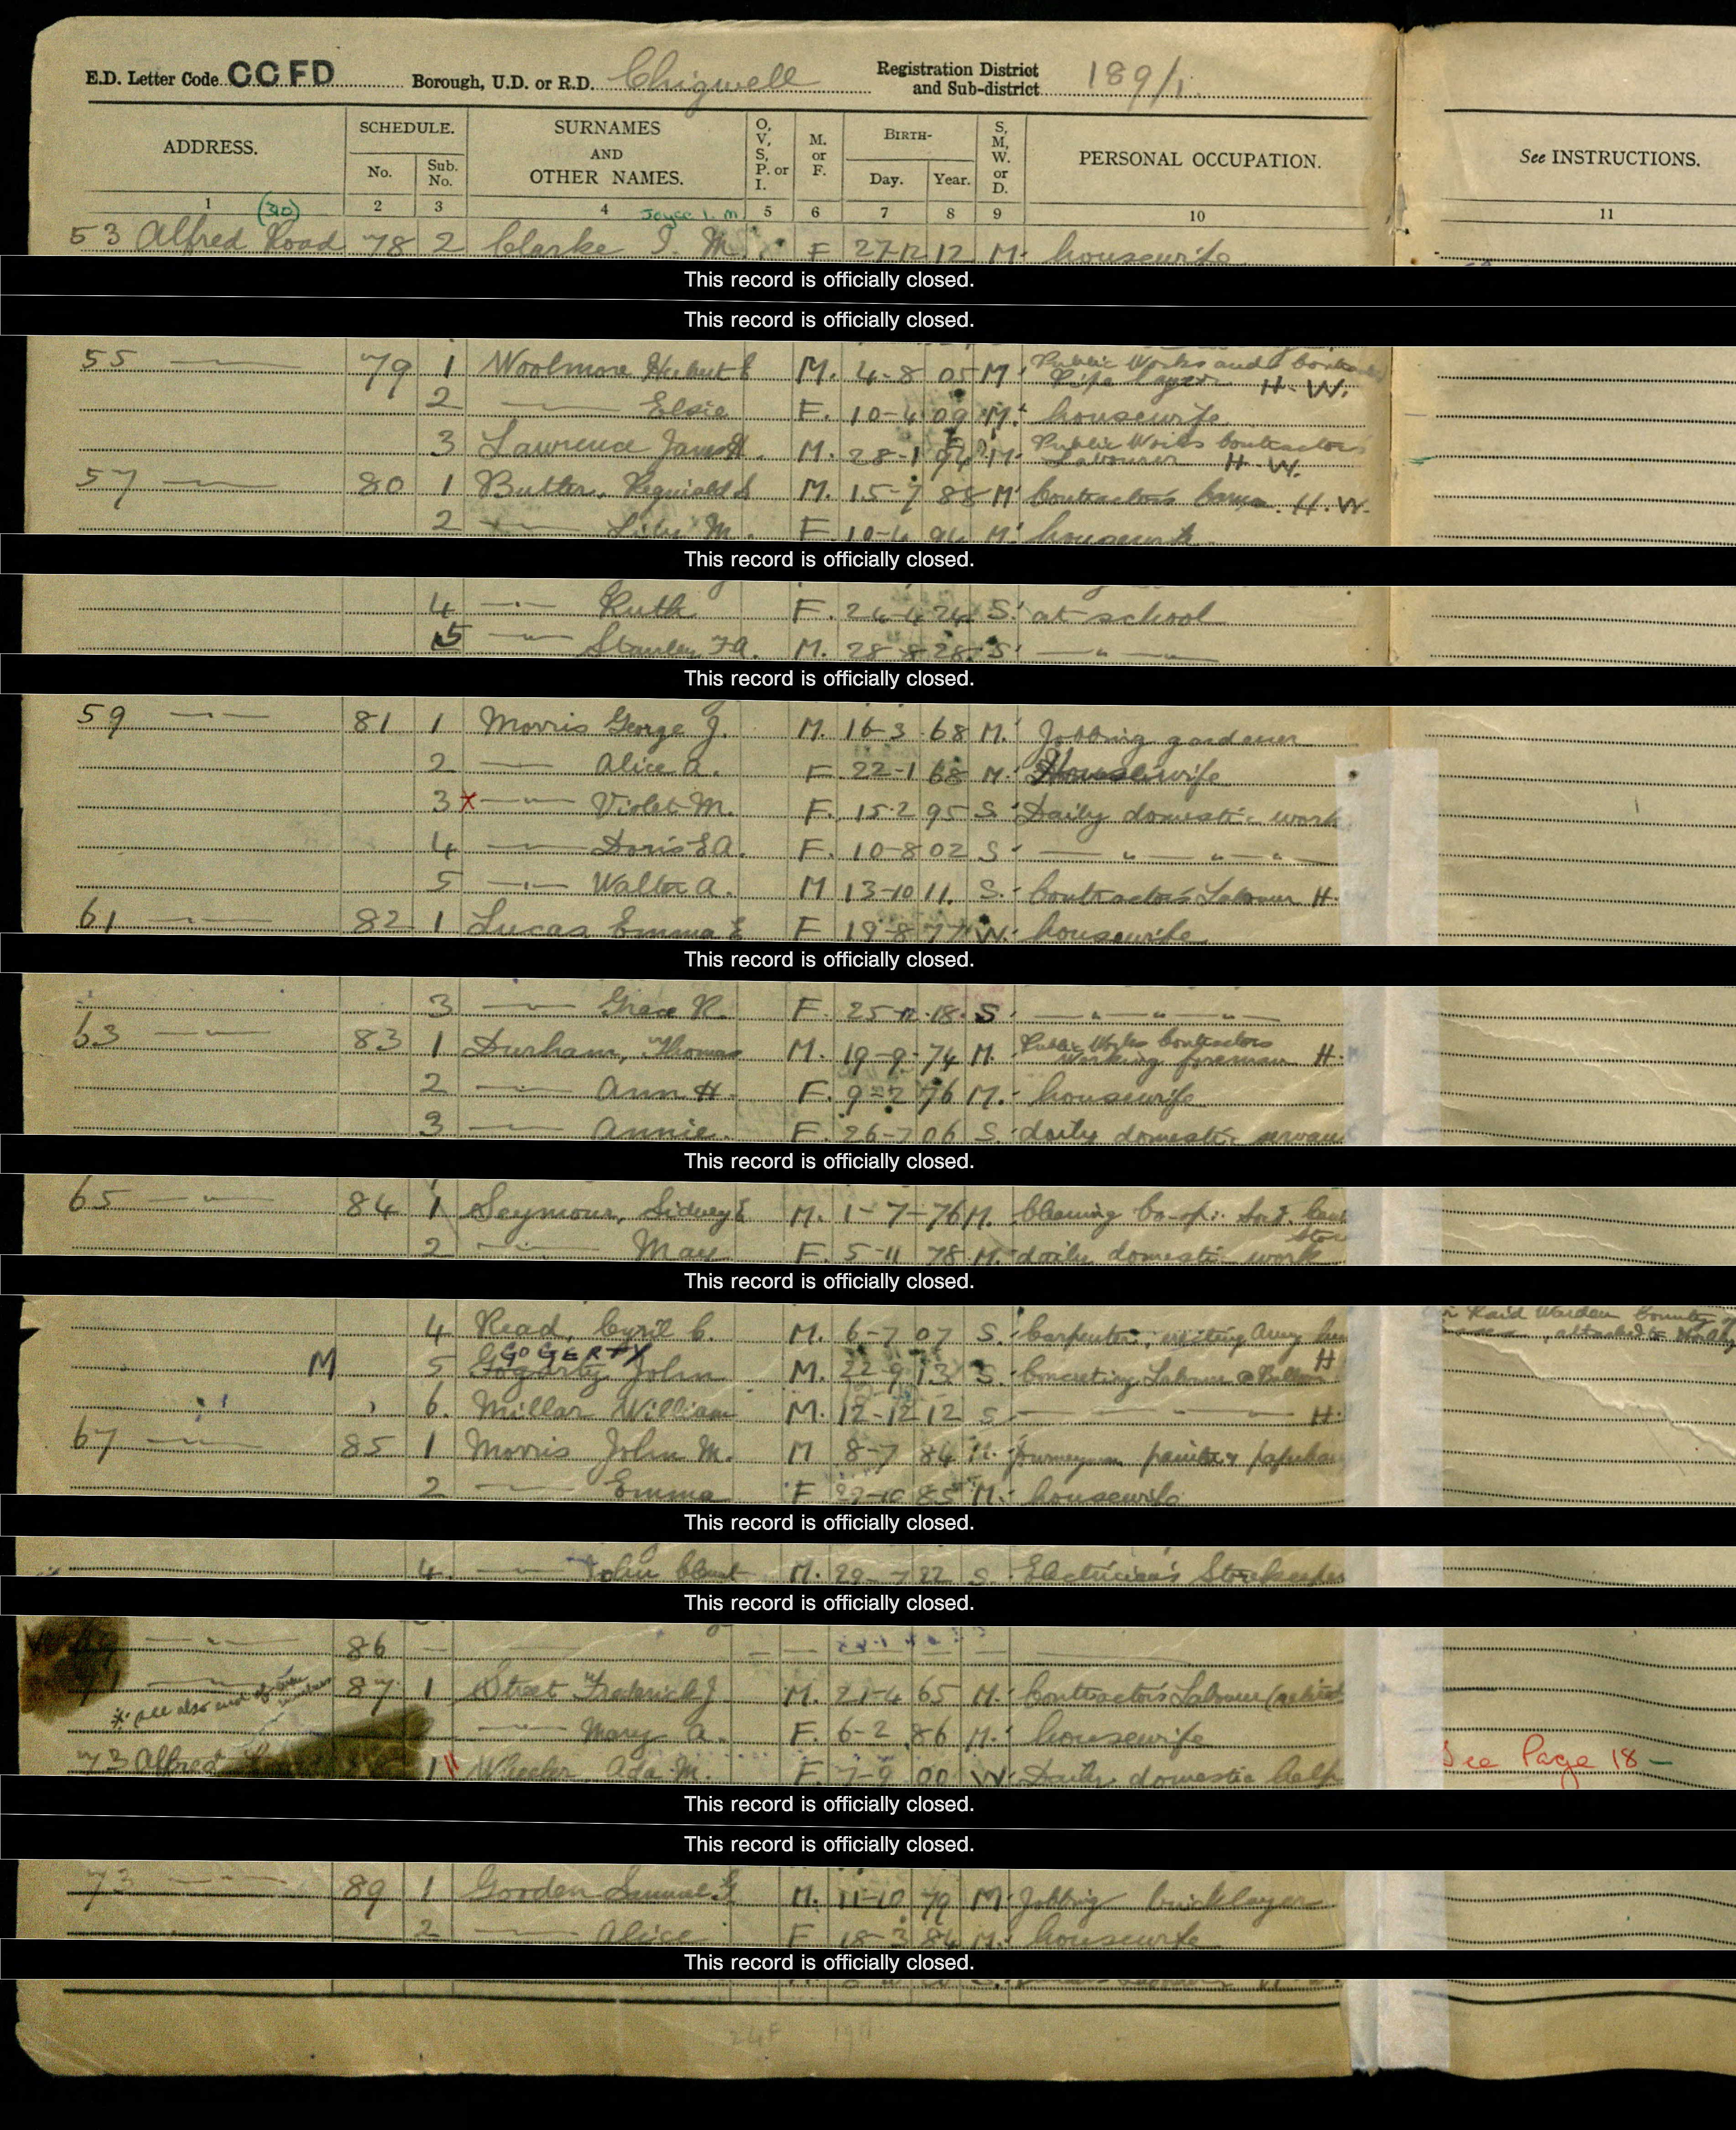 E.D. Letter Code CCFD Borough, U.D. or R.D. Chigwell Registration District and Sub-district 189/1
ADDRESS. SCHEDULE. No. Sub. No. SURNAMES AND OTHER NAMES. O, V, S, P. or I. M. or F. BIRTH- Day. Year. S, M, W. or D. PERSONAL OCCUPATION. See INSTRUCTIONS.
1 2 3 4 5 6 7 8 9 10 11
53 Alfred Road 78 2 Clarke M. F 27-12 12 M. housewife
This record is officially closed.
This record is officially closed.
55 79 1 Woolmore Hubert M. 4-8 05 M Public Works and
Pipe Layer H.W.
2 Elsie F. 10-4 09 M. housewife
3 Lawrence James H. M. 28-1 M. Public Works Contractors
Labourer H.W.
57 80 1 Butler, Reginald M. 15-7 88 M Contractors H.W.
2 Lily M. F. M.
This record is officially closed.
4 Ruth F. 24 S. at school
5 Stanley F.A. M. 28-8 28 S. " 
This record is officially closed.
59 81 1 Morris George J. M. 16-3 68 M. Jobbing gardener
2 Alice A. F 22-1 68 M. Housewife
3 x Violet M. F. 15-2 95 S. Daily domestic work
4 Doris E.A. F. 10-8 02 S " " "
5 Walter A. M 13-10 11. S. Contractors Labourer H.
61 82 1 Lucas Emma E F 19-8 77 W. housewife
This record is officially closed.
3 Grace R. F. 25 18 S. " " "
63 83 1 Durham, Thomas M. 19-9-74 M. Public Works Contractors
Working foreman H.
2 Ann H. F. 9-2 76 M. housewife
3 Annie. F. 26-7 06 S. daily domestic servan
This record is officially closed.
65 84 1 Seymour, Sidney E M. 1-7-76 M. Co-op.
2 May F. 5-11 78 M. daily domestic work
This record is officially closed.
4 Read, Cyril C. M. 6-7 07 S. Carpenter, Raid Warden
GOGERTY
M 5 Gogarty John M. 22-9 13 S. Concreting Labourer H
6. Millar William M. 12-12 12 S H.
67 85 1 Morris John M. M 8-7 84 M. Journeyman painter & paperhan
2 Emma F 85 M. housewife
This record is officially closed.
4. John M. 29-7 22 S. Electrician's Storekeeper
This record is officially closed.
86
87 1 Street Frederick J. M. 21-4 65 M. Contractors Labourer
* see also end of
Mary A. F. 6-2 86 M. housewife
Alfred 1 Wheeler Ada M. F. 7-9 00 W. Daily domestic help See Page 18
This record is officially closed.
This record is officially closed.
73 89 1 Gorden Samuel G M. 11-10 79 M. Jobbing bricklayer
2 Alice F 18-3 84 M. housewife
This record is officially closed.